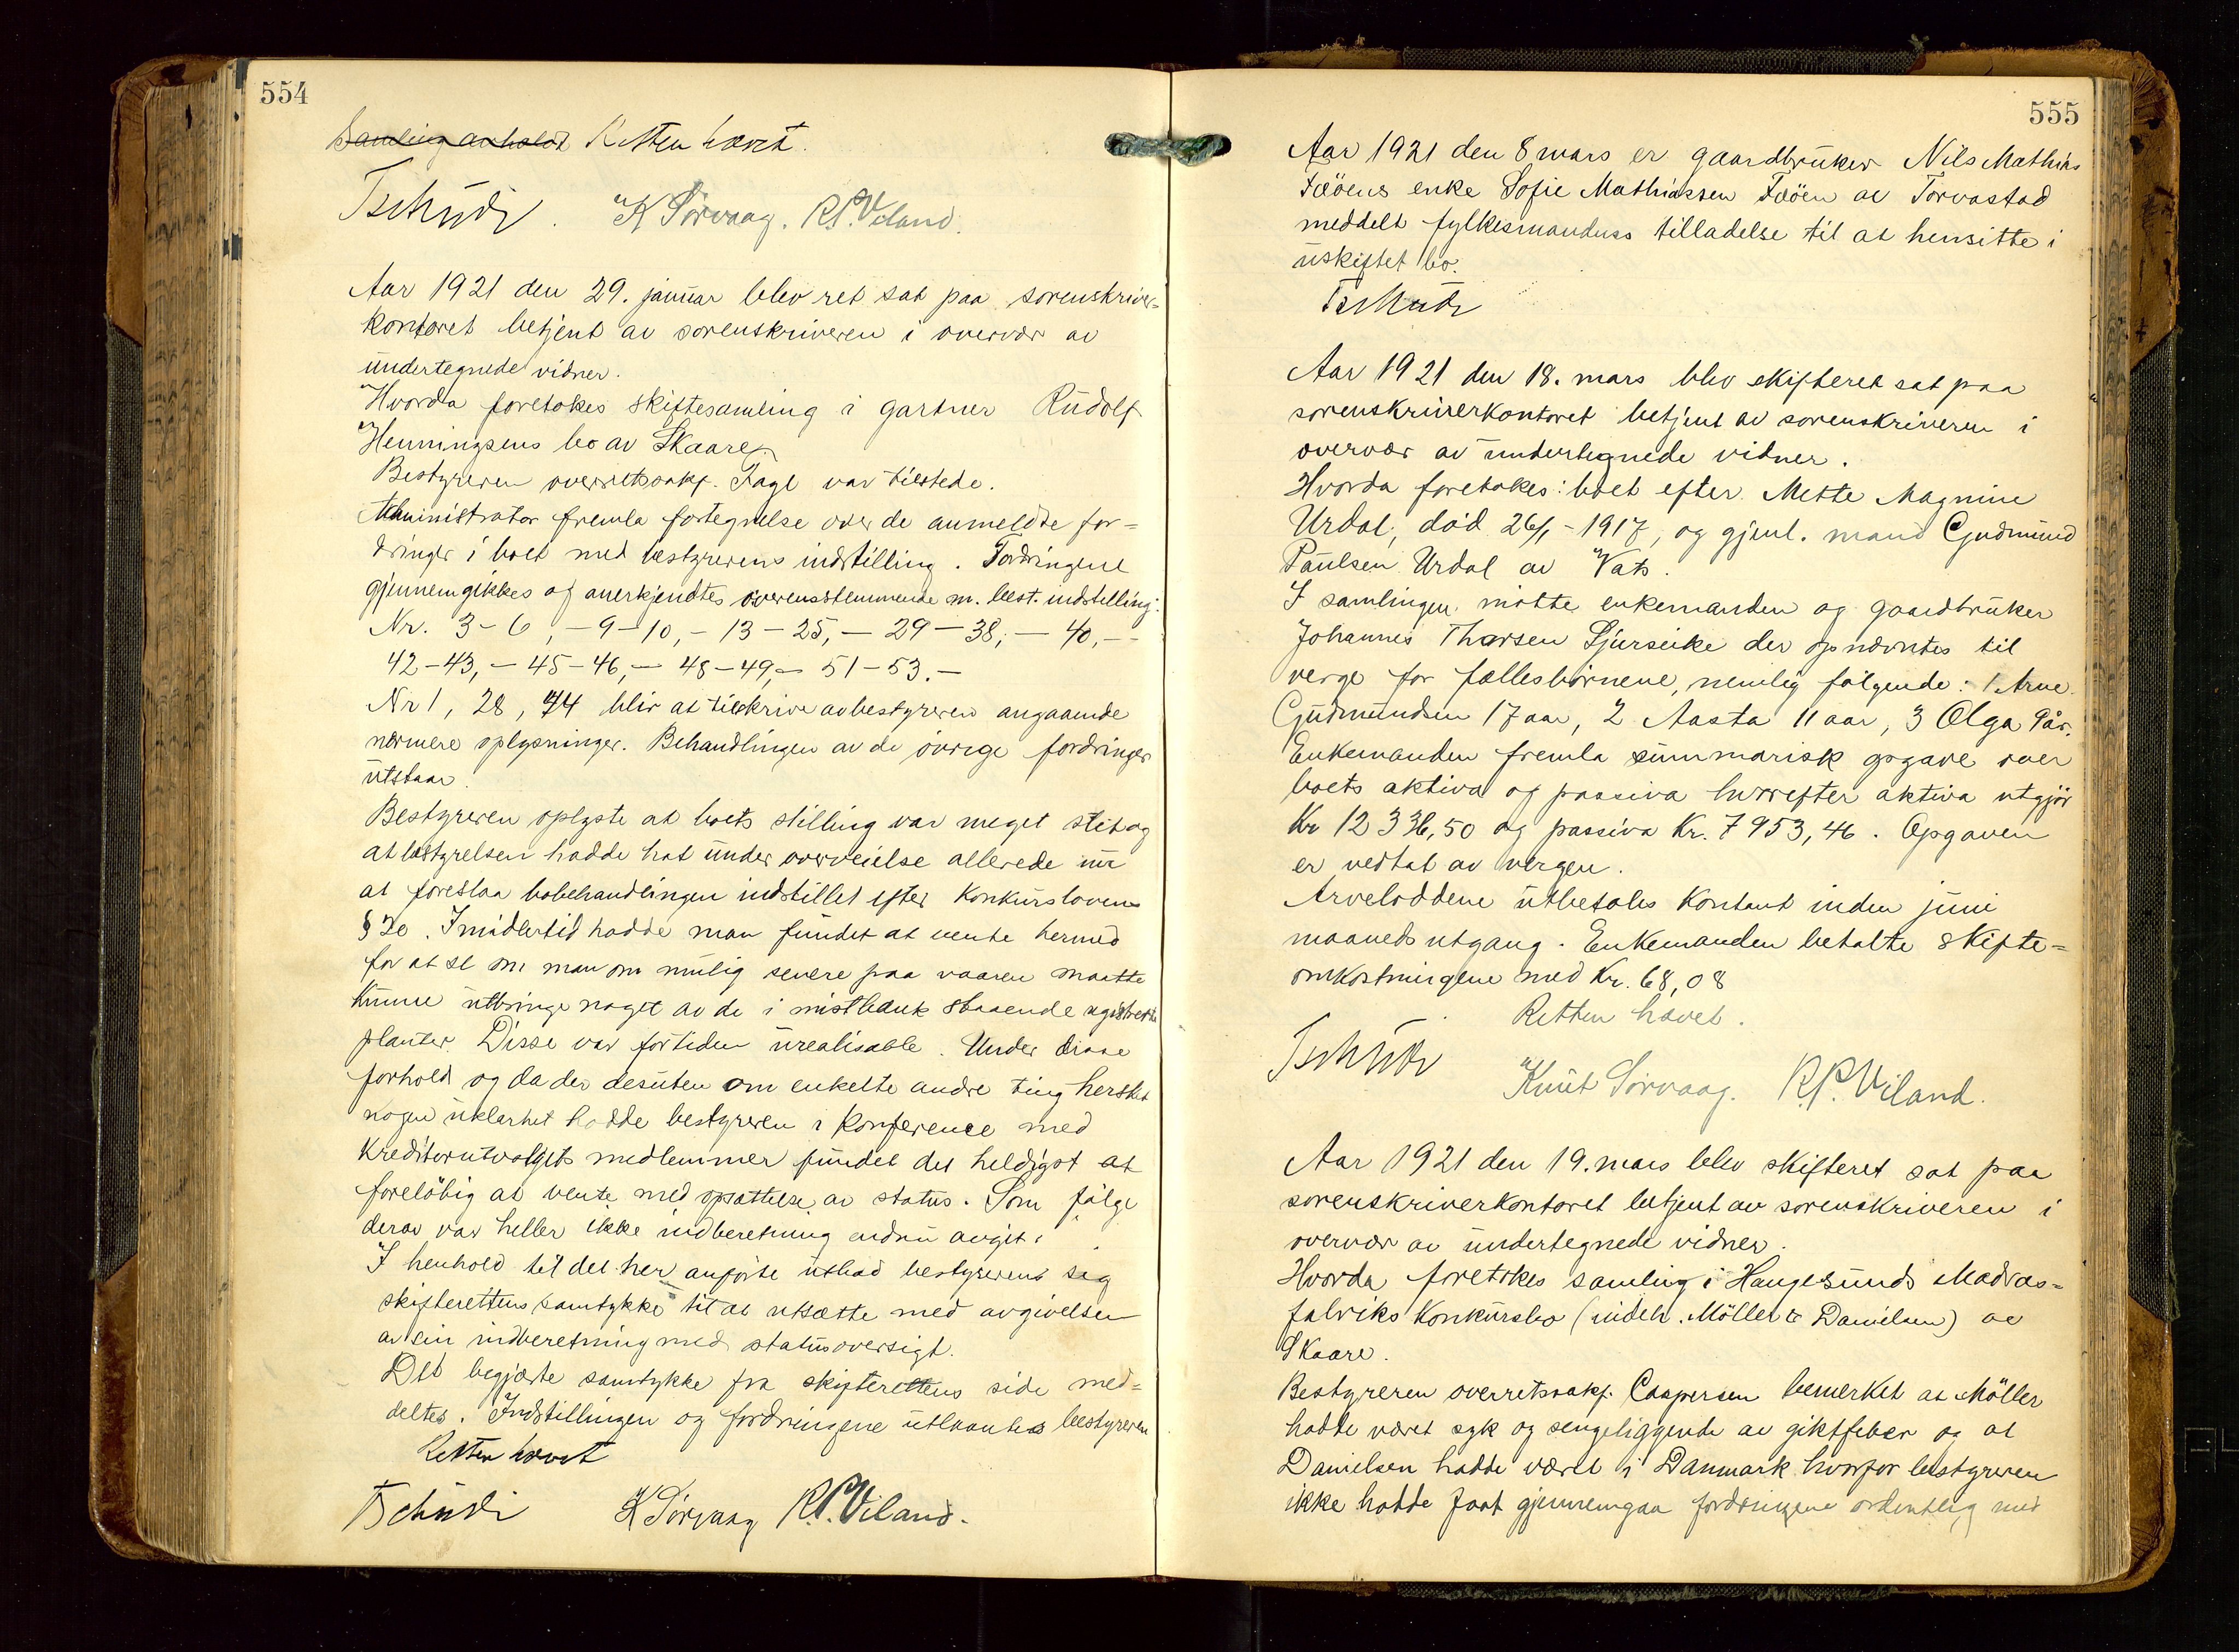 554
Samling avholdt Retten hævet.
Tschudi. K Sørvaag. R.P. Viland.
Aar 1921 den 29. januar blev ret sat paa sorenskriver-
kontoret betjent av sorenskriveren i overvær av
undertegnede vidner.
Hvorda foretokes skiftesamling i gartner Rudolf
Henningsens bo av Skaare.
Bestyreren overretssakf. Fage var tilstede.
Administrator fremla fortegnelse over de anmeldte for-
dringer i boet med bestyrerens indstilling. Fordringene
gjennemgikkes og anerkjendtes overensstemmende m. best. indstilling:
Nr. 3-6, - 9-10, - 13-25, - 29-38, - 40, -
42-43, - 45-46, - 48-49, - 51-53. -
Nr 1, 28, 44 blir at tilskrive av bestyreren angaaende
nærmere oplysninger. Behandlingen av de øvrige fordringer
utstaar.
Bestyreren oplyste at boets stilling var meget slet og
at bestyrelsen hadde hat under overveielse allerede nu
at foreslaa bobehandlingen indstillet efter Konkurslovens
§ 20. Imidlertid hadde man fundet at vente hermed
for at se om man om mulig senere paa vaaren maatte
kunne utbringe noget av de i mistbænk staaende registrerte
planter. Disse var for tiden urealisable. Under disse
forhold og da der desuten om enkelte andre ting hersket
nogen uklarhet hadde bestyreren i konference med
Kreditorutvalgets medlemmer fundet det heldigst at
foreløbig at vente med opsættelse av status. Som følge
derav var heller ikke indberetning endnu avgit.
I henhold til det her anførte utbad bestyreren sig
skifterettens samtykke til at utsætte med avgivelsen
av sin indberetning med statusoversigt.
Det begjærte samtykke fra skifterettens side med-
deltes. Indstillingen og fordringene utlaantes bestyreren
Retten hævet
Tschudi K Sørvaag R.P. Viland.
555
Aar 1921 den 8 mars er gaardbruker Nils Mathias
Fæøens enke Sofie Mathiassen Fæøen av Torvastad
meddelt fylkesmandens tilladelse til at hensitte i
uskiftet bo.
Tschudi
Aar 1921 den 18. mars blev skifteret sat paa
sorenskriverkontoret betjent av sorenskriveren i
overvær av undertegnede vidner.
Hvorda foretokes: boet efter Mette Magnine
Urdal, død 26/1-1917, og gjenl. mand Gudmund
Paulsen Urdal av Vats.
I samlingen møtte enkemanden og gaardbruker
Johannes Thorsen Sjurseike der opnævntes til
verge for fællesbørnene, nemlig følgende: 1 Arne
Gudmundsen 17 aar, 2 Aasta 11 aar, 3 Olga 9 år.
Enkemanden fremla summarisk opgave over
boets aktiva og passiva hvorefter aktiva utgjør
Kr 12 336,50 og passiva Kr. 7 953,46. Opgaven
er vedtat av vergen.
Arveloddene utbetales kontant inden juni
maaneds utgang. Enkemanden betalte skifte-
omkostningene med Kr. 68,08
Retten hævet.
Tschudi
Knut Sørvaag. R.P. Viland.
Aar 1921 den 19. mars blev skifteret sat paa
sorenskriverkontoret betjent av sorenskriveren i
overvær av undertegnede vidner.
Hvorda foretokes samling i Haugesunds Madras-
fabriks Konkursbo (indeh. Möller & Danielsen) av
Skaare.
Bestyreren overretssakf. Caspersen bemerket at Möller
hadde været syk og sengeliggende av giktfeber og at
Danielsen hadde været i Danmark hvorfor bestyreren
ikke hadde faat gjennemgaa fordringene ordentlig med